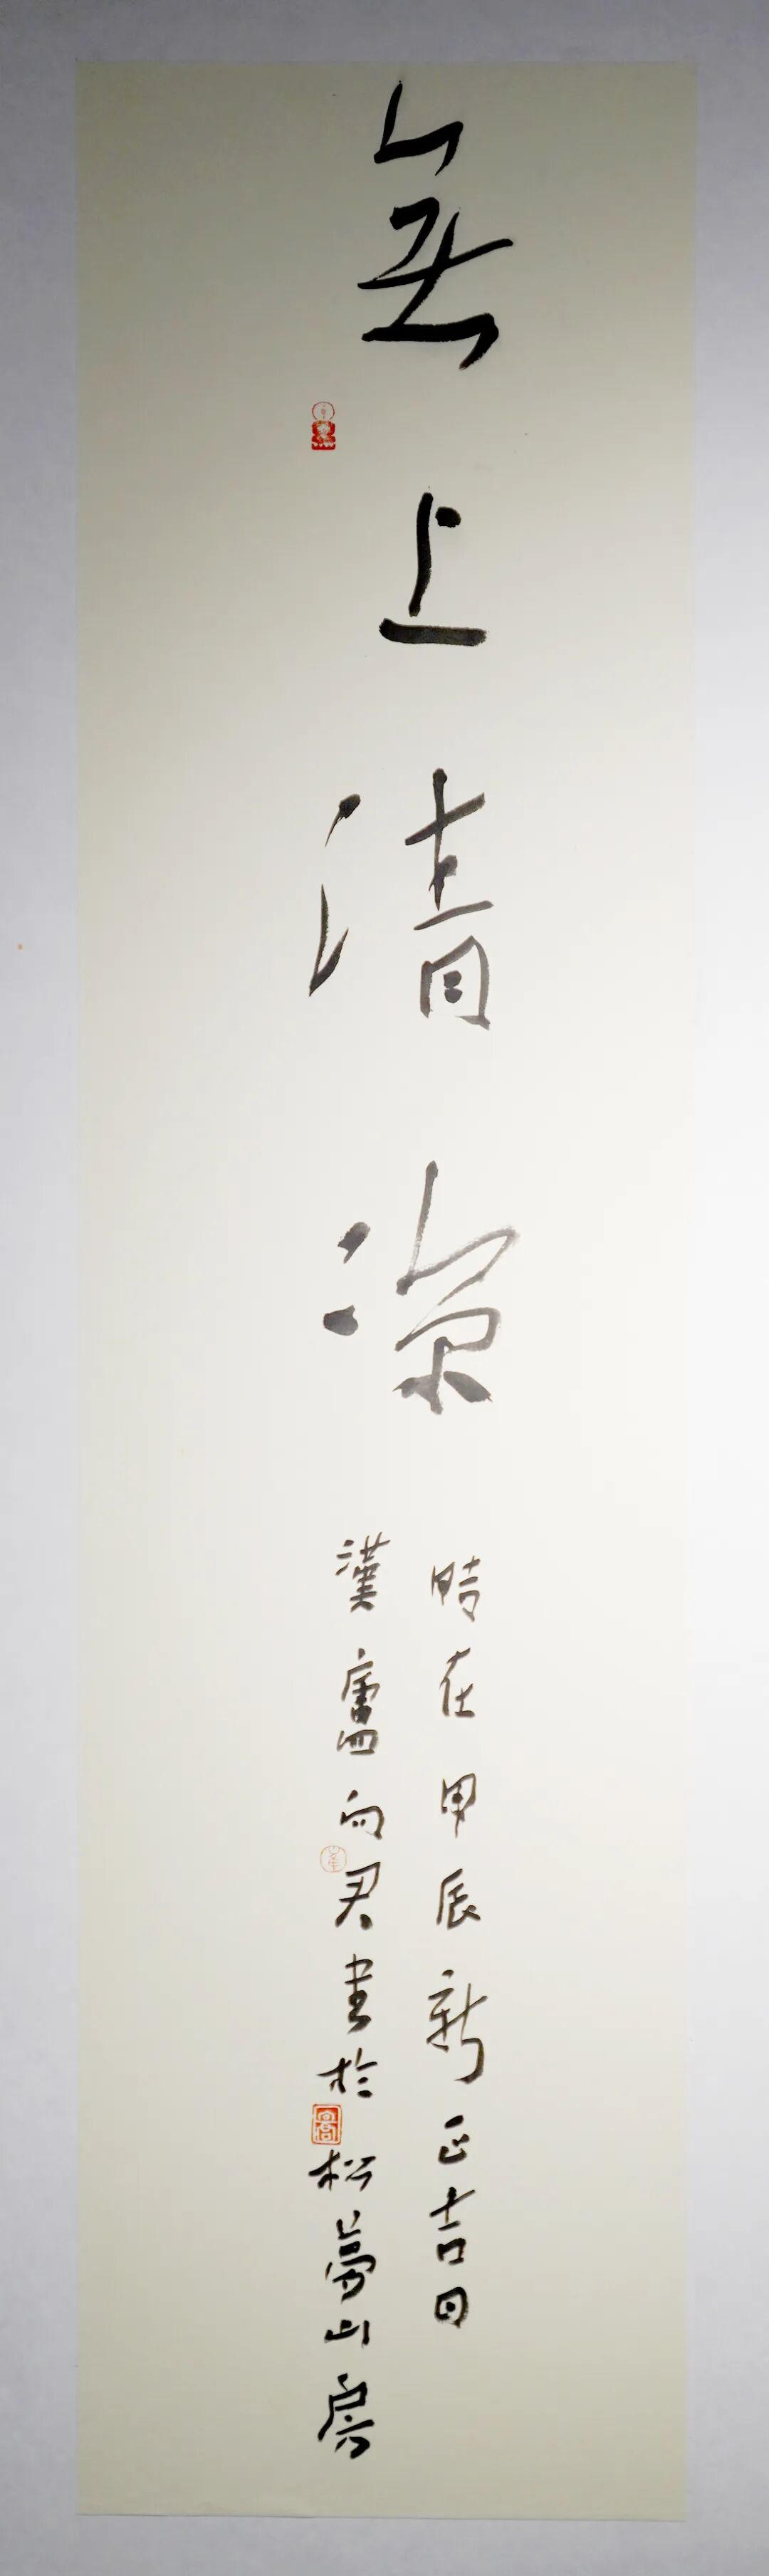 無上清涼
時在甲辰新正吉日
漢廬向君書於松夢山房